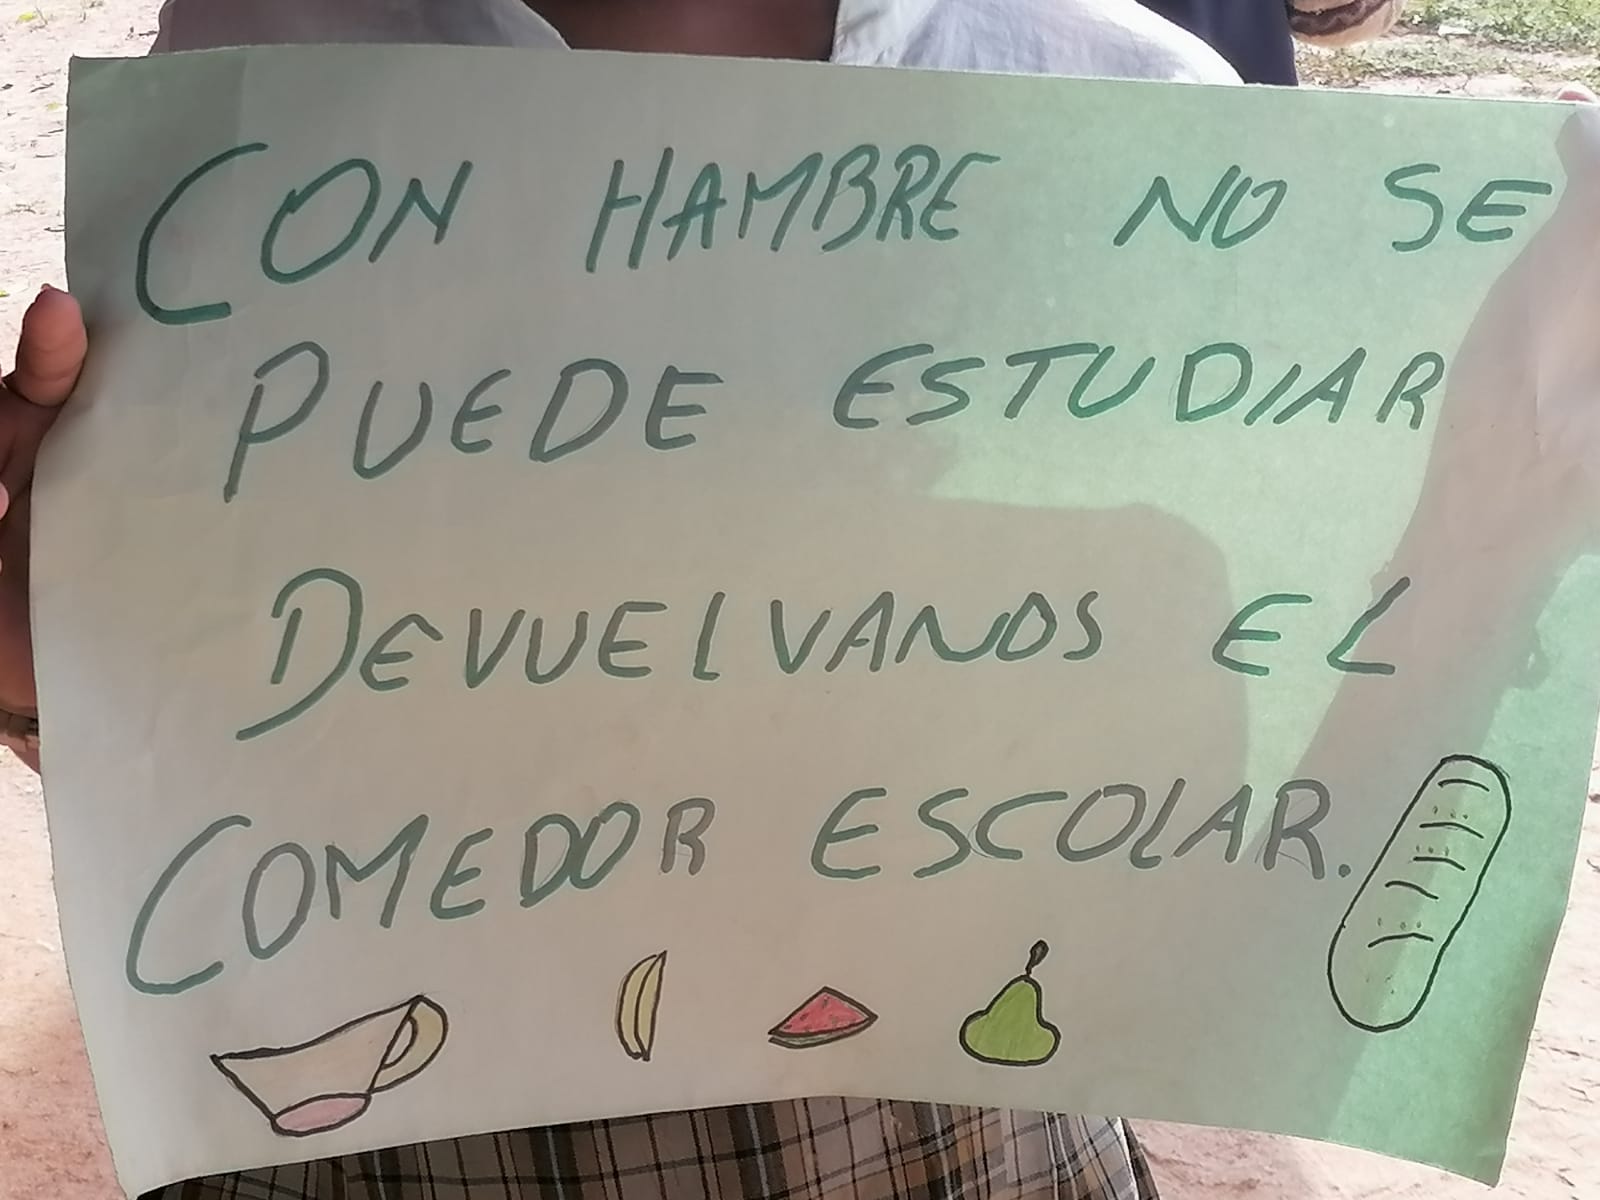 CON HAMBRE NO SE
PUEDE ESTUDIAR
DEVUELVANOS EL
COMEDOR ESCOLAR.